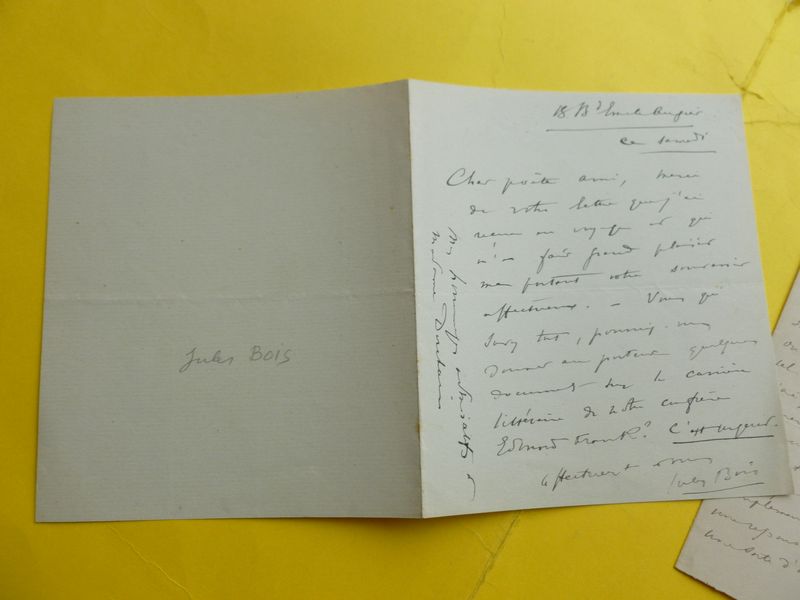 Jules Bois
15 Bd Emile Augier
ce samedi
Cher poète ami, merci
de votre lettre que j'ai
reçue en voyage et qui
m'a fait grand plaisir
me portant votre souvenir
affectueux. – Vous qui
savez tout, pourriez-vous
donner au porteur quelques
documents sur la carrière
littéraire de notre confrère
Edmond Frank? C'est urgent.
affectueust à vous
Jules Bois
Mes hommages à
Madame